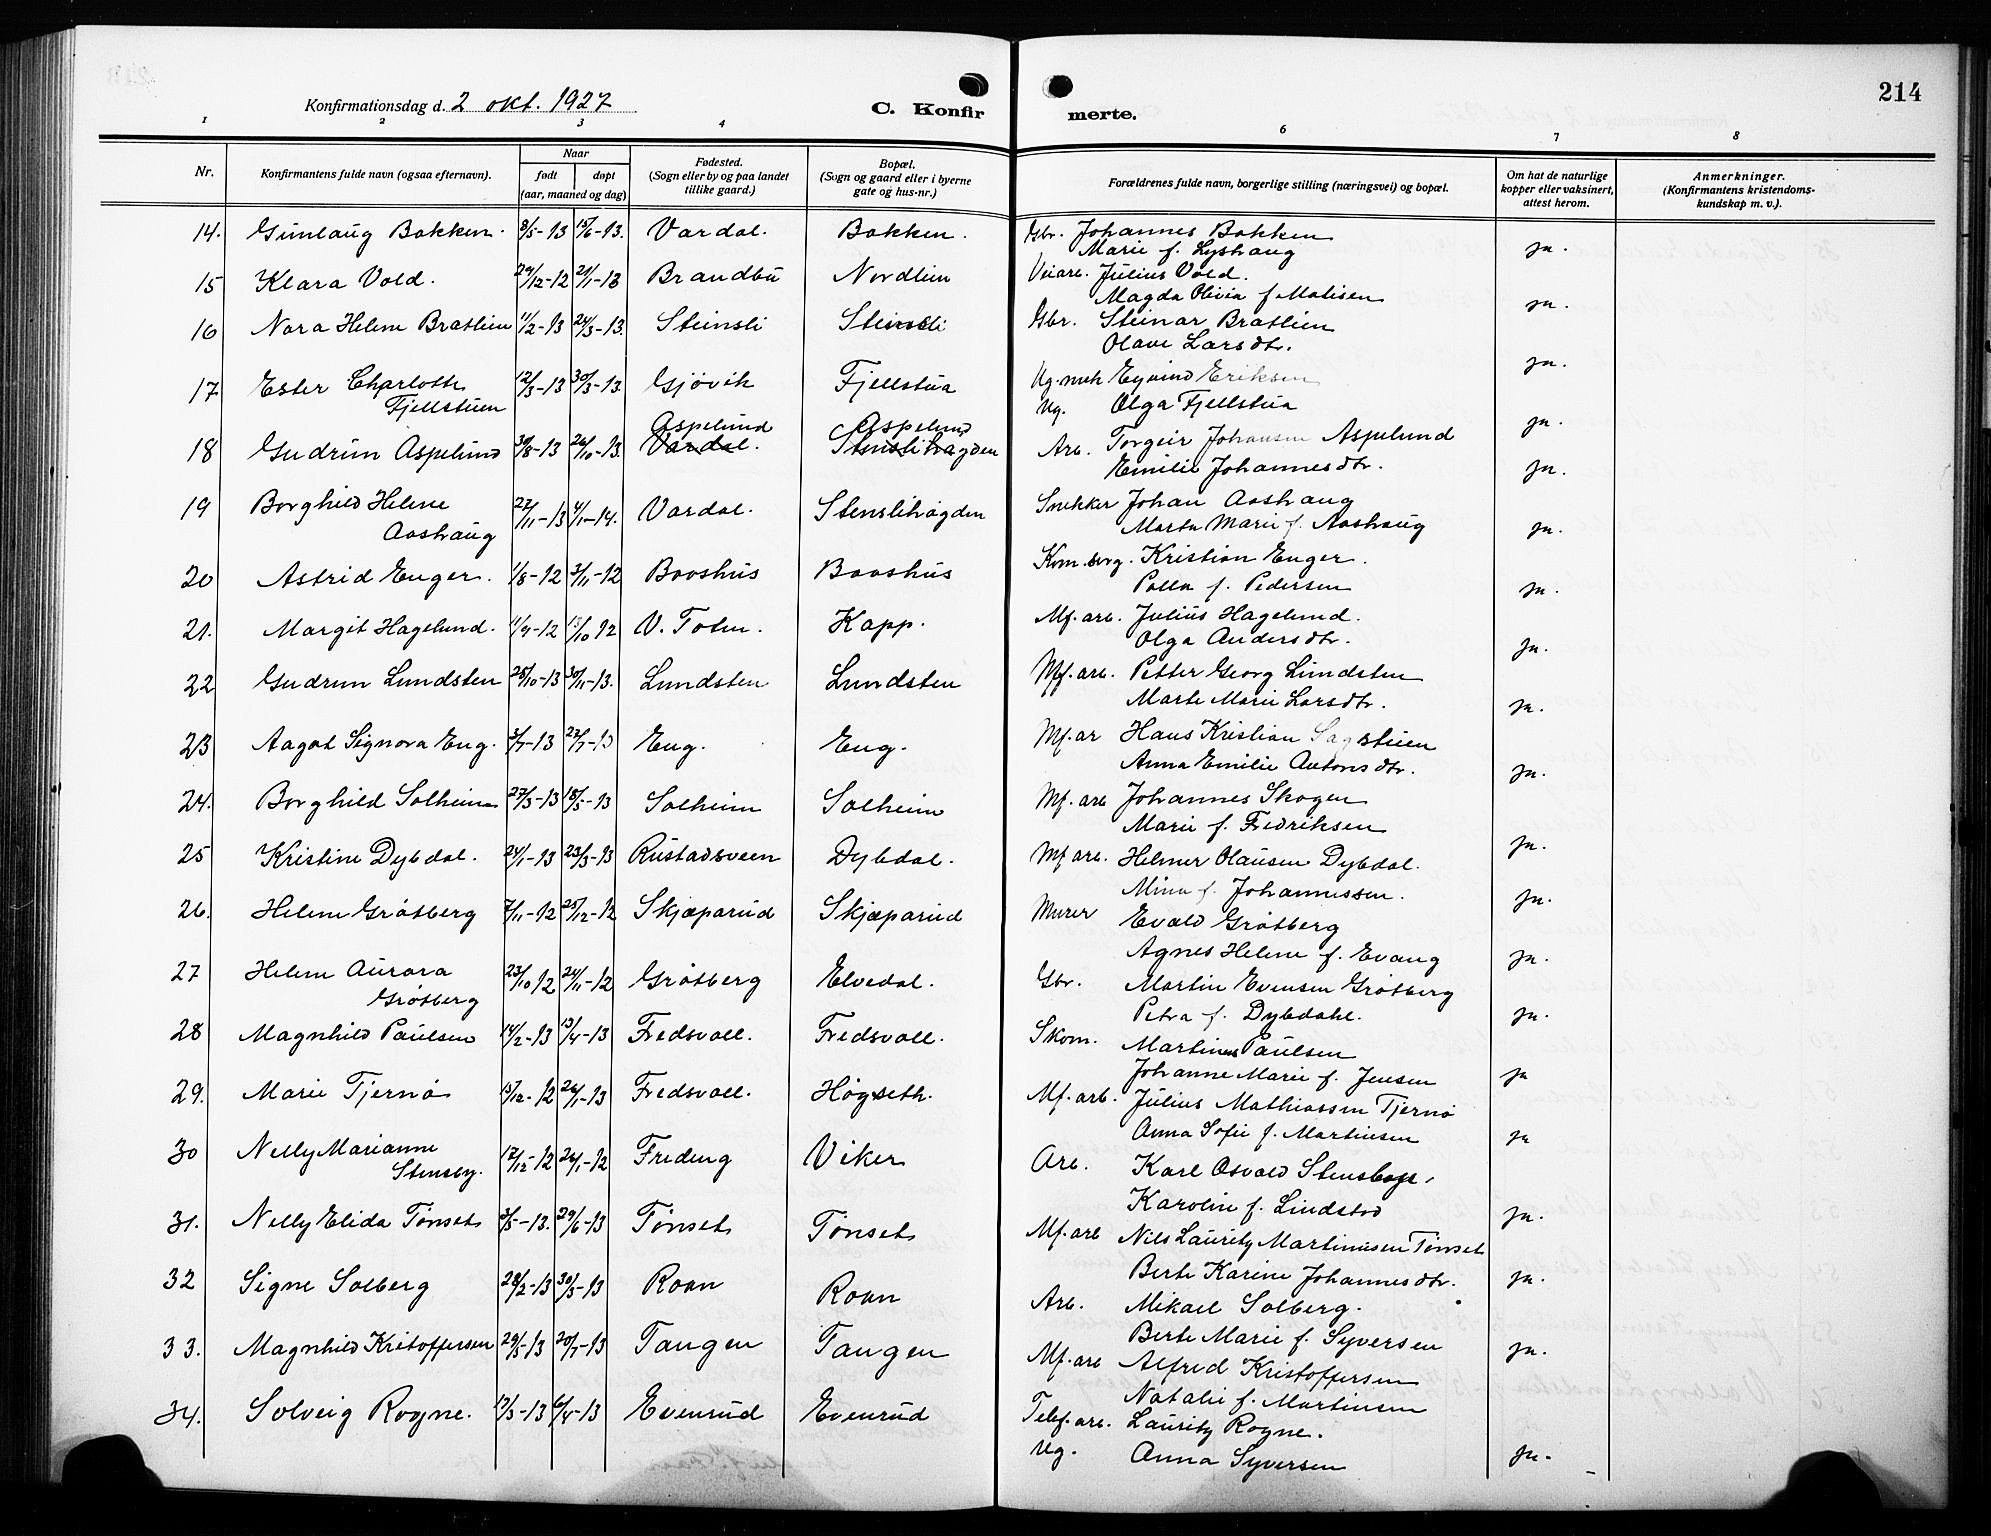 214
Konfirmationsdag d. 2 okt. 1927
C. Konfir merte.
1 2 3 4 5 6 7 8
Nr.
Konfirmantens fulde navn (ogsaa efternavn).
Naar
født døpt
(aar, maaned og dag)
Fødested.
(Sogn eller by og paa landet
tillike gaard.)
Bopæl.
(Sogn og gaard eller i byerne
gate og hus-nr.)
Forældrenes fulde navn, borgerlige stilling (næringsvei) og bopæl.
Om hat de naturlige
kopper eller vaksinert,
attest herom.
Anmerkninger.
(Konfirmantens kristendoms-
kundskap m. v.).
14. Gunlaug Bakken. 9/5-13 15/6-13. Vardal. Bakken. Gbr. Johannes Bakken
Marie f. Lyshaug ja.
15 Klara Vold. 29/12-12 21/1-13 Brandbu Nordlien Veiarb. Julius Vold.
Magda Olivia f Matisen ja.
16 Nora Helene Bratlien 11/2-13 24/3-13. Steinsli Steinsli Gbr. Steinar Bratlien
Olave Larsdtr. ja.
17 Ester Charlotte 12/3-13 30/3-13. Gjövik Fjellstua Ug. mek Eyvind Eriksen
Fjellstuen Ug. Olga Fjellstua ja.
Aspelund Aspelund
18 Gudrun Aspelund 30/8-13 26/10-13. Vardal. Stenslihagden Arb. Torgeir Johansen Aspelund
Emilie Johannesdtr. ja.
19 Borghild Helene 27/11-13 4/1-14. Vardal. Stenslihøgden Snekker Johan Aashaug
Aashaug Marta Marie f. Aashaug ja.
20 Astrid Enger. 1/8-12 3/11-12 Baashus Baashus Kom.borg. Kristian Enger.
Palla f. Pedersen ja.
21. Margit Hagelund. 11/9-12 13/10 12 V. Toten. Kapp. Mf. arb. Julius Hagelund.
Olga Andersdtr. ja.
22 Gudrun Lundsten 28/10-13 30/11-13. Lundsten Lundsten Mf. arb. Petter Georg Lundsten
Marte Marie Larsdtr. ja.
23 Aagot Signora Eng. 3/7-13 27/7-13 Eng. Eng. Mf. ar Hans Kristian Sagstuen
Anna Emilie Antonsdtr. ja.
24. Borghild Solheim 27/3-13 18/5-13 Solheim Solheim Mf. arb Johannes Skogen
Marie f. Fredriksen ja.
25 Kristine Dybdal. 24/1-13 23/3-13 Rustadsveen Dybdal. Mf arb. Helmer Olausen Dybdal.
Mina f. Johannessen. ja.
26. Helene Gråtberg 7/11-12 25/12-12 Skjæparud Skjæparud Murer Evald Gråtberg
Agnes Helene f. Evang ja.
27 Helene Aurora 23/10 12 24/11-12 Gråtberg Elvedal. Gbr. Martin Evensen Gråtberg
Gråtberg Petra f. Dybdahl. ja.
28 Magnhild Paulsen 14/2-13 13/4-13 Fredsvoll. Fredsvoll. Skom. Martinus Paulsen
Johanne Marie f. Jensen ja
29. Marie Tjernø 15/12-12 26/1-13 Fredsvoll. Høgseth. Mf. arb. Julius Mathiassen Tjernø
Anna Sofie f. Martinsen ja
30 Nelly Marianne 17/12-12 26/1-12 Fredeng Viker Arb. Karl Osvald Stensby
Stensby. Karolin f. Lindstad ja.
31. Nelly Elida Tønset 3/5-13. 29/6-13 Tønset Tønset Mf. arb Nils Lauritz Martinusen Tønset
Berte Karine Johannesdtr. ja.
32 Signe Solberg 28/2-13 30/3-13 Roan Roan Arb. Mikael Solberg.
Berte Marie f. Syversen ja.
33. Magnhild Kristoffersen 29/5-13 20/7-13 Tangen Tangen Mf. arb Alfred Kristoffersen
Natalie f. Martinsen
34. Solveig Rogne. 17/3-13 6/4-13 Evenrud Evenrud Telef. arb. Lauritz Rogne.
Ug. Anna Syversen ja.